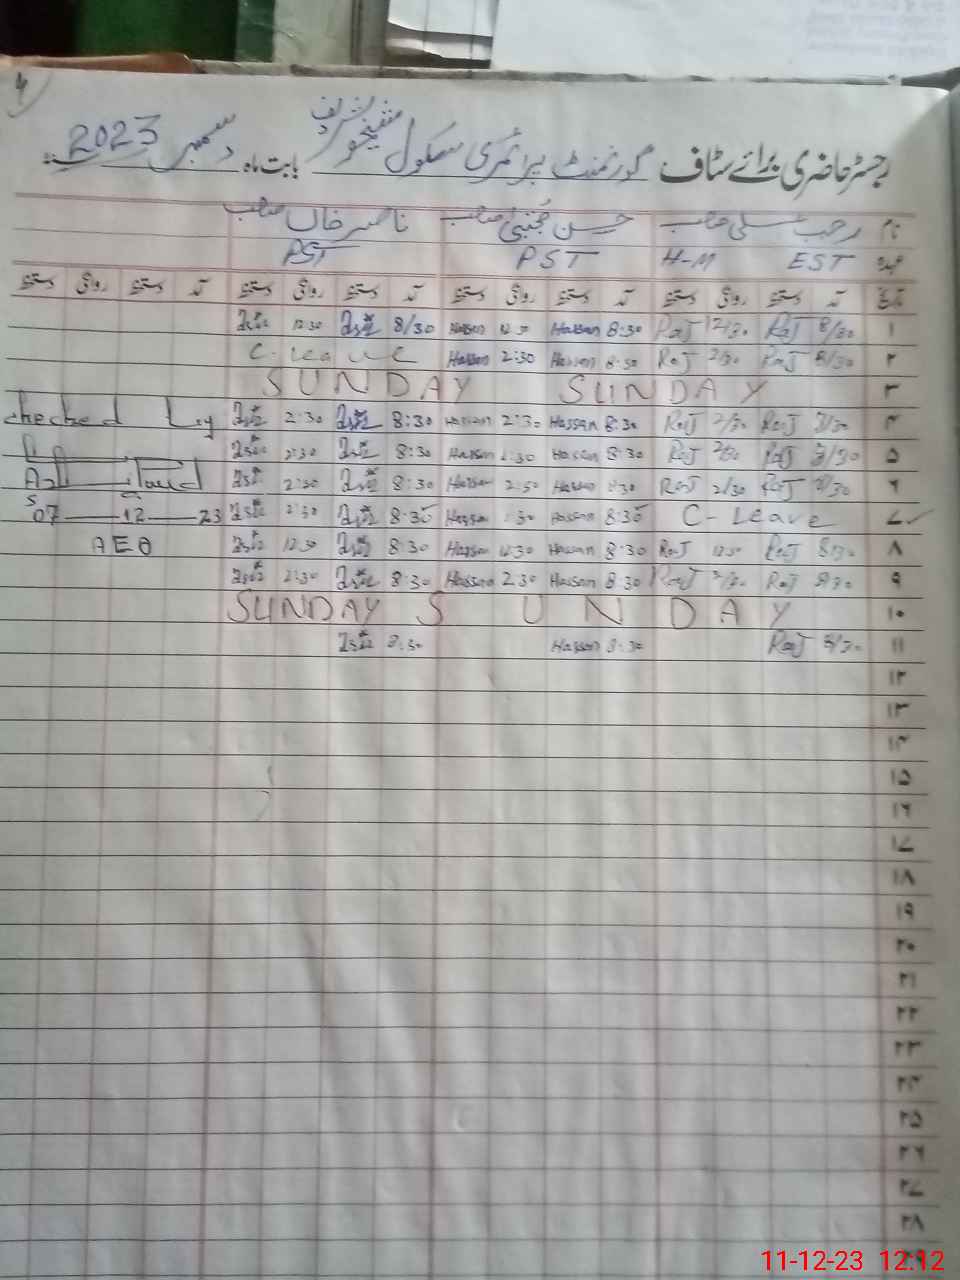 رجسٹر حاضری برائے سٹاف گورنمنٹ پرائمری سکول بابت ماہ دسمبر 2023
نام رجب علی صاحب حسن مجتبیٰ صاحب ناصر خان صاحب
عہدہ EST H-M PST PST
تاریخ آمد دستخط روانگی دستخط آمد دستخط روانگی دستخط آمد دستخط روانگی دستخط آمد دستخط روانگی دستخط
۱ 8/30 Raj 12/30 Raj 8:30 Hassan 12:30 Hassan 8/30 12:30
۲ 8/30 Raj 2/30 Raj 8:30 Hassan 2:30 Hassan C. Leave
۳ SUNDAY SUNDAY
۴ 8/30 Raj 2/30 Raj 8:30 Hassan 2:30 Hassan 8:30 2:30 checked by
۵ 8/30 Raj 2/30 Raj 8:30 Hassan 2:30 Hassan 8:30 2:30
۶ 8/30 Raj 2/30 Raj 8:30 Hassan 2:30 Hassan 8:30 2:30
۷ C- Leave 8:30 Hassan 2:30 Hassan 8:30 2:30 07-12-23
۸ 8:30 Raj 12:30 Raj 8:30 Hassan 12:30 Hassan 8:30 12:30 AEO
۹ 8/30 Raj 2/30 Raj 8:30 Hassan 2:30 Hassan 8:30 2:30
۱۰ SUNDAY SUNDAY
۱۱ 8/30 Raj 8:30 Hassan 8:30
۱۲
۱۳
۱۴
۱۵
۱۶
۱۷
۱۸
۱۹
۲۰
۲۱
۲۲
۲۳
۲۴
۲۵
۲۶
۲۷
۲۸
11-12-23 12:12